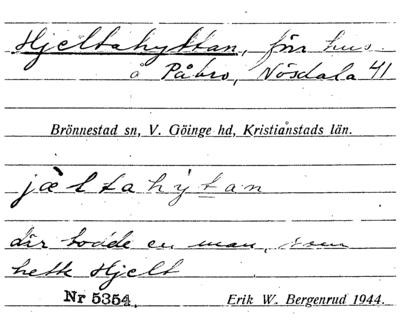 Hjeltahyttan, förr hus
å Påbro, Nösdala 41
Brönnestad sn, V. Göinge hd, Kristianstads län.
jæltahytan
där bodde en man, som
hette Hjelt
Nr 5354. Erik W. Bergenrud 1944.